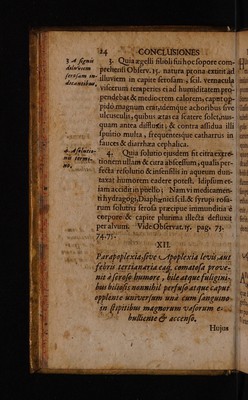 24 CONCLUSIONES
3 A signis
diluviem
serosam in-
dicantibus,
3. Quia ægelli filioli sui hoc sopore com-
prehensi Observ. 15. natura prona extitit ad
illuviem in capite serosam, scil. vernacula
viscerum temperies ei ad humiditatem pro-
pendebat & mediocrem calorem, caput op-
pido magnum erat, idemque achoribus sive
ulcusculis, quibus ætas ea scatere solet, nus-
quam antea diffluxit; & contra assidua illi
sputitio multa, frequentesque catharri in
fauces & diarrhæa cephalica.
4. Quia solutio ejusdem fit citra excre-
tionem ullam & citra abscessum, qualis per-
fecta resolutio & insensilis in aqueum dun-
taxat humorem cadere potest. Idipsum et-
iam accidit in pusillo; Nam vi medicamen-
ti hydragogi, Diaphœnici scil. & syrupi rosa-
rum solutivi serosa præcipue immunditia è
corpore & capite plurima illecta defluxit
per alvum. Vide Observat. 15. pag. 73.
74. 75.
XII.
Parapoplexia sive Apoplexia levis aut
febris tertianaria eaq; comatosa prove-
nit à seroso humore, bile atque fuligini-
bus biliosis nonnihil perfuso atque caput
opplente universum unà cum sanguine
in stipitibus magnorum vasorum e-
bulliente & accenso.
Hujus